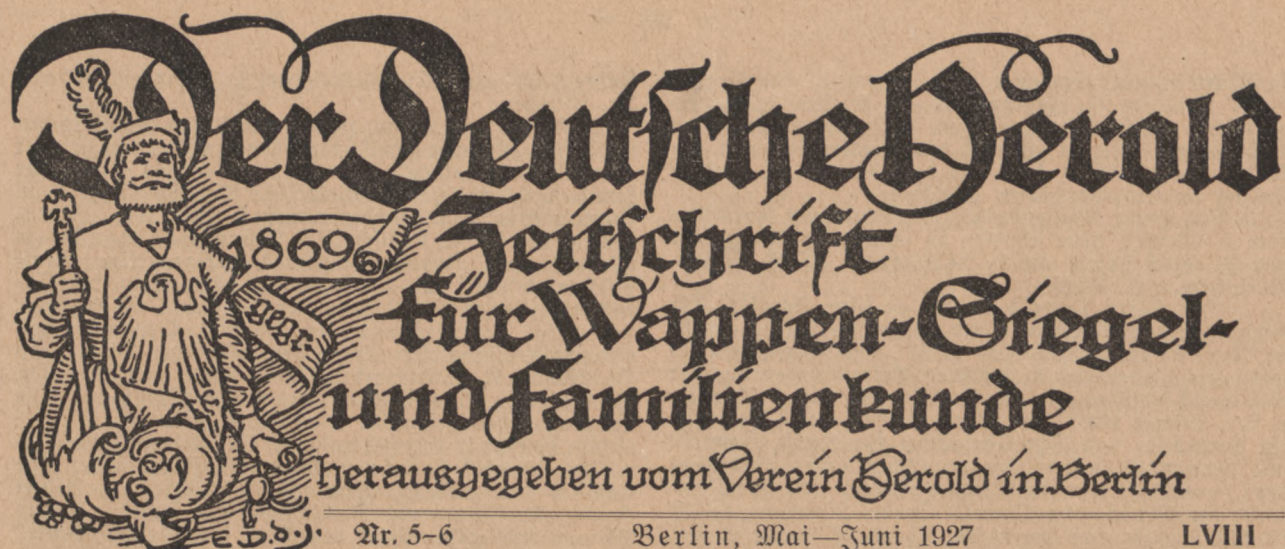 Der Deutsche Herold
1869
gegr.
Zeitschrift
für Wappen-Siegel-
und Familienkunde
herausgegeben vom Verein Herold in Berlin
E. D. d. J.
Nr. 5-6 Berlin, Mai—Juni 1927 LVIII